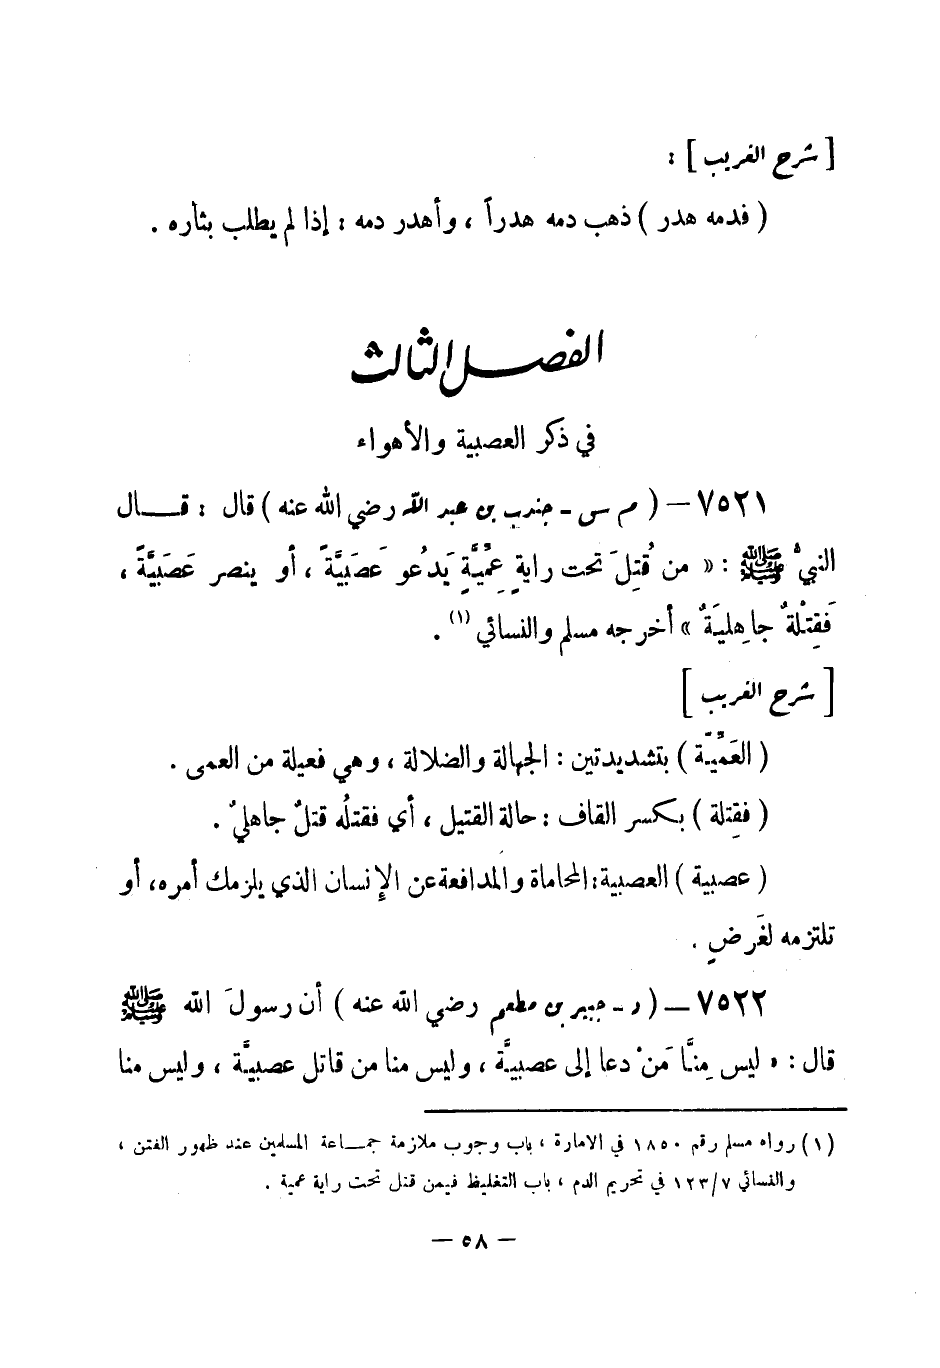 [ شرح الغريب ] :
( فدمه هدر ) ذهب دمه هدراً ، وأهدر دمه : إذا لم يطلب بثأره .
الفصل الثالث
في ذكر العصبية والأهواء
٧٥٢١ – ( م س - جندب بن عبد الله رضي الله عنه ) قال : قـــال
النبيُّ ﷺ : « من قُتِلَ تحت رايةٍ عِمِّيَّةٍ يَدعُو عَصَبيَّةً ، أو ينصر عَصَبِيَّةً ،
فَقِتْلةٌ جاهِليَةٌ » أخرجه مسلم والنسائي (١) .
[ شرح الغريب ]
( العَمِّيّة ) بتشديدتين : الجهالة والضلالة ، وهي فعيلة من العمى .
( فقِتلة ) بكسر القاف : حالة القتيل ، أي فقتلُه قتلٌ جاهليٌ .
( عصبية ) العصبية : المحاماة والمدافعة عن الإنسان الذي يلزمك أمره ، أو
تلتزمه لغَرضٍ .
٧٥٢٢ – ( د - جبير بن مطعم رضي الله عنه ) أن رسولَ الله ﷺ
قال : « ليس مِنَّا مَنْ دعا إلى عصبيَّة ، وليس منا من قاتل عصبيَّة ، وليس منا
(١) رواه مسلم رقم ١٨٥٠ في الامارة ، باب وجوب ملازمة جمـــاعة المسلمين عند ظهور الفتن ،
والنسائي ١٢٣/٧ في تحريم الدم ، باب التغليظ فيمن قتل تحت راية عمية .
– ٥٨ –